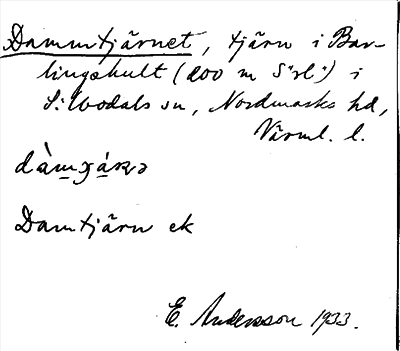 Dammtjärnet, tjärn i Bar-
lingshult (200 m S"rl") i
S: Modals sn, Nordmarks hd,
Värml. l.
Damtjärn ek
E. Andersson 1933.